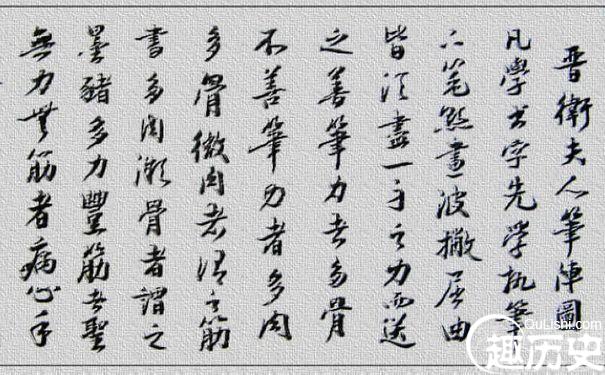 晋衛夫人筆陣圖
凡學書字先學執筆
下筆點畫波撇屈曲
皆須盡一身之力而送
之善筆力者多骨
不善筆力者多肉
多骨微肉者謂之筋
書多肉微骨者謂之
墨豬多力豐筋者聖
無力無筋者病心手
QuLishi.com
趣历史